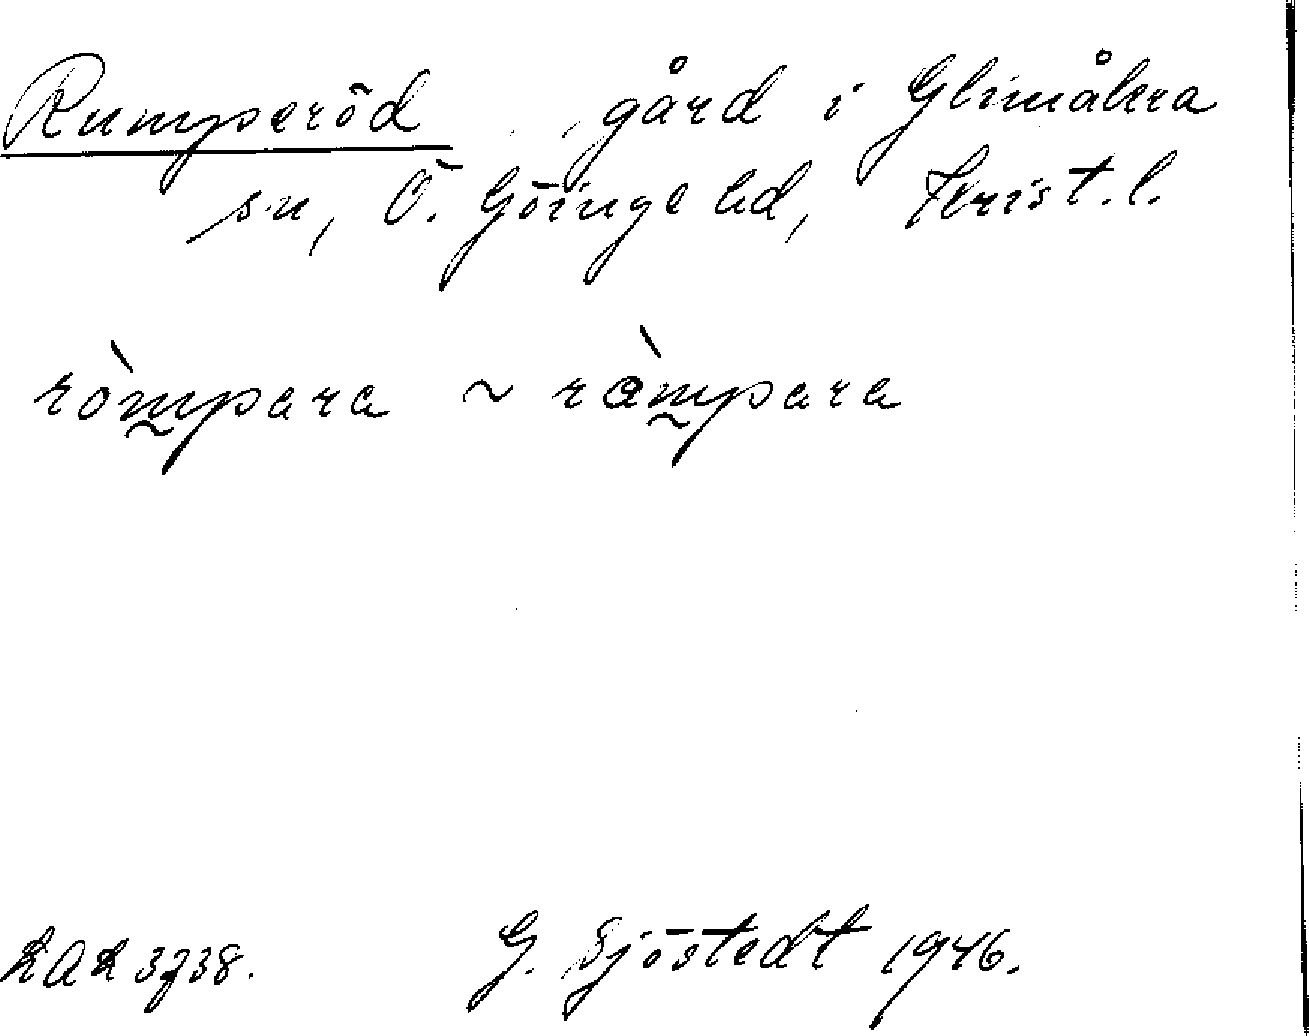 Rumperöd, gård i Glimåkra
sn, Ö. Göinge hd, Krist. l.
ròmpara ~ ràmpara
G. Sjöstedt 1946.